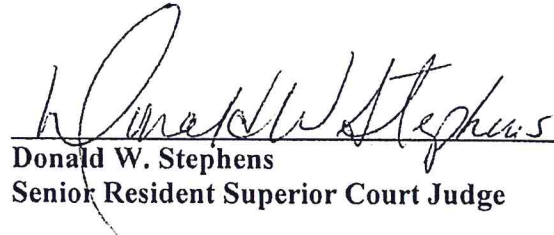 Donald W. Stephens
Donald W. Stephens
Senior Resident Superior Court Judge